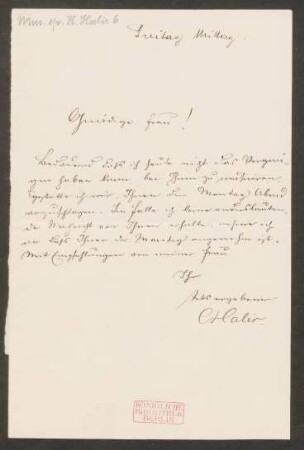 Mus. ep. K. Halir 6
Freitag Mittag.
Gnädige Frau!
Bedauernd daß ich heute nicht das Vergnü-
gen haben kann bei Ihnen zu musiciren,
gestatte ich mir Ihnen den Montag Abend
vorzuschlagen. Im Falle ich keine
Nachricht von Ihnen erhalte, nehme ich
an daß Ihnen der Montag angenehm ist.
Mit Empfehlungen von meiner Frau
Ihr
ergebener
CHalir.
KÖNIGLICHE
BIBLIOTHEK
BERLIN